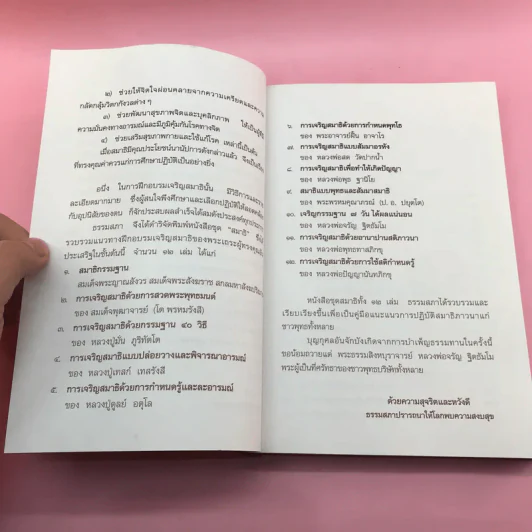 ๒) ช่วยให้จิตใจผ่อนคลายจากความเครียดและความ
กลัดกลุ้มวิตกกังวลต่าง ๆ
๓) ช่วยพัฒนาสุขภาพจิตและบุคลิกภาพ ให้เป็นผู้มี
ความมั่นคงทางอารมณ์และมีภูมิคุ้มกันโรคทางจิต
๔) ช่วยเสริมสุขภาพกายและใช้แก้โรค เหล่านี้เป็นต้น
เมื่อสมาธิมีคุณประโยชน์นานัปการดังกล่าวแล้ว จึงเป็นเรื่อง
ที่ทรงคุณค่าควรแก่การศึกษาปฏิบัติเป็นอย่างยิ่ง
อนึ่ง ในการฝึกอบรมเจริญสมาธินั้น มีวิธีการและราย
ละเอียดมากมาย ซึ่งผู้สนใจพึงศึกษาและเลือกปฏิบัติให้สอดคล้อง
กับอุปนิสัยของตน ก็จักประสบผลสำเร็จได้สมดังประสงค์ทุกประการ
ธรรมสภา จึงได้ดำริจัดพิมพ์หนังสือชุด "สมาธิ" ซึ่งได้
รวบรวมแนวทางฝึกอบรมเจริญสมาธิของพระเถระผู้ทรงคุณอัน
ประเสริฐในชั้นต้นนี้ จำนวน ๑๒ เล่ม ได้แก่
๑. สมาธิกรรมฐาน
สมเด็จพระญาณสังวร สมเด็จพระสังฆราช สกลมหาสังฆปริณายก
๒. การเจริญสมาธิด้วยการสวดพระพุทธมนต์
ของ สมเด็จพุฒาจารย์ (โต พรหมรังสี)
๓. การเจริญสมาธิด้วยกรรมฐาน ๔๐ วิธี
ของ หลวงปู่มั่น ภูริทัตโต
๔. การเจริญสมาธิแบบปล่อยวางและพิจารณาอารมณ์
ของ หลวงปู่เทสก์ เทสรังสี
๕. การเจริญสมาธิด้วยการกำหนดรู้และละอารมณ์
ของ หลวงปู่ดูลย์ อตุโล
๖. การเจริญสมาธิด้วยการกำหนดพุทโธ
ของ พระอาจารย์ฝั้น อาจาโร
๗. การเจริญสมาธิแบบสัมมาอรหัง
ของ หลวงพ่อสด วัดปากน้ำ
๘. การเจริญสมาธิเพื่อทำให้เกิดปัญญา
ของ หลวงพ่อพุธ ฐานิโย
๙. สมาธิแบบพุทธและสัมมาสมาธิ
ของ พระพรหมคุณาภรณ์ (ป. อ. ปยุตโต)
๑๐. เจริญกรรมฐาน ๗ วัน ได้ผลแน่นอน
ของ หลวงพ่อจรัญ ฐิตธัมโม
๑๑. การเจริญสมาธิด้วยอานาปานสติภาวนา
ของ หลวงพ่อพุทธทาสภิกขุ
๑๒. การเจริญสมาธิด้วยการใช้สติกำหนดรู้
ของ หลวงพ่อปัญญานันทภิกขุ
หนังสือชุดสมาธิทั้ง ๑๒ เล่ม ธรรมสภาได้รวบรวมและ
เรียบเรียงขึ้นเพื่อเป็นคู่มือแนะแนวการปฏิบัติสมาธิภาวนาแก่
ชาวพุทธทั้งหลาย
บุญกุศลอันจักบังเกิดจากการบำเพ็ญธรรมทานในครั้งนี้
ขอน้อมถวายแด่ พระธรรมสิงหบุราจารย์ หลวงพ่อจรัญ ฐิตธัมโม
พระผู้เป็นที่ศรัทธาของชาวพุทธบริษัททั้งหลาย
ด้วยความสุจริตและหวังดี
ธรรมสภาปรารถนาให้โลกพบความสงบสุข